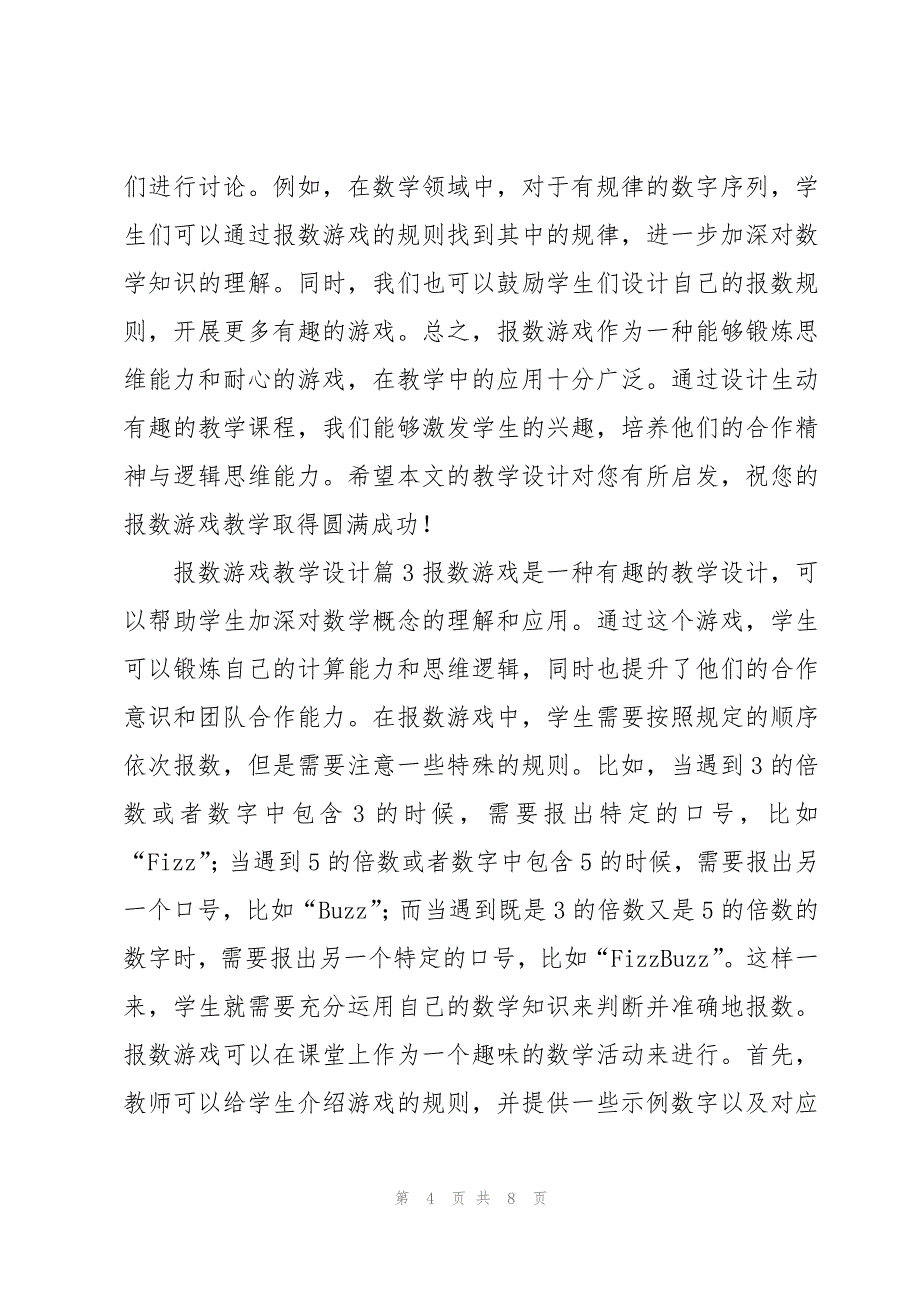 们进行讨论。例如，在数学领域中，对于有规律的数字序列，学
生们可以通过报数游戏的规则找到其中的规律，进一步加深对数
学知识的理解。同时，我们也可以鼓励学生们设计自己的报数规
则，开展更多有趣的游戏。总之，报数游戏作为一种能够锻炼思
维能力和耐心的游戏，在教学中的应用十分广泛。通过设计生动
有趣的教学课程，我们能够激发学生的兴趣，培养他们的合作精
神与逻辑思维能力。希望本文的教学设计对您有所启发，祝您的
报数游戏教学取得圆满成功！
报数游戏教学设计篇3报数游戏是一种有趣的教学设计，可
以帮助学生加深对数学概念的理解和应用。通过这个游戏，学生
可以锻炼自己的计算能力和思维逻辑，同时也提升了他们的合作
意识和团队合作能力。在报数游戏中，学生需要按照规定的顺序
依次报数，但是需要注意一些特殊的规则。比如，当遇到3的倍
数或者数字中包含3的时候，需要报出特定的口号，比如
“Fizz”；当遇到5的倍数或者数字中包含5的时候，需要报出另
一个口号，比如“Buzz”；而当遇到既是3的倍数又是5的倍数的
数字时，需要报出另一个特定的口号，比如“FizzBuzz”。这样一
来，学生就需要充分运用自己的数学知识来判断并准确地报数。
报数游戏可以在课堂上作为一个趣味的数学活动来进行。首先，
教师可以给学生介绍游戏的规则，并提供一些示例数字以及对应
第 4 页 共 8 页